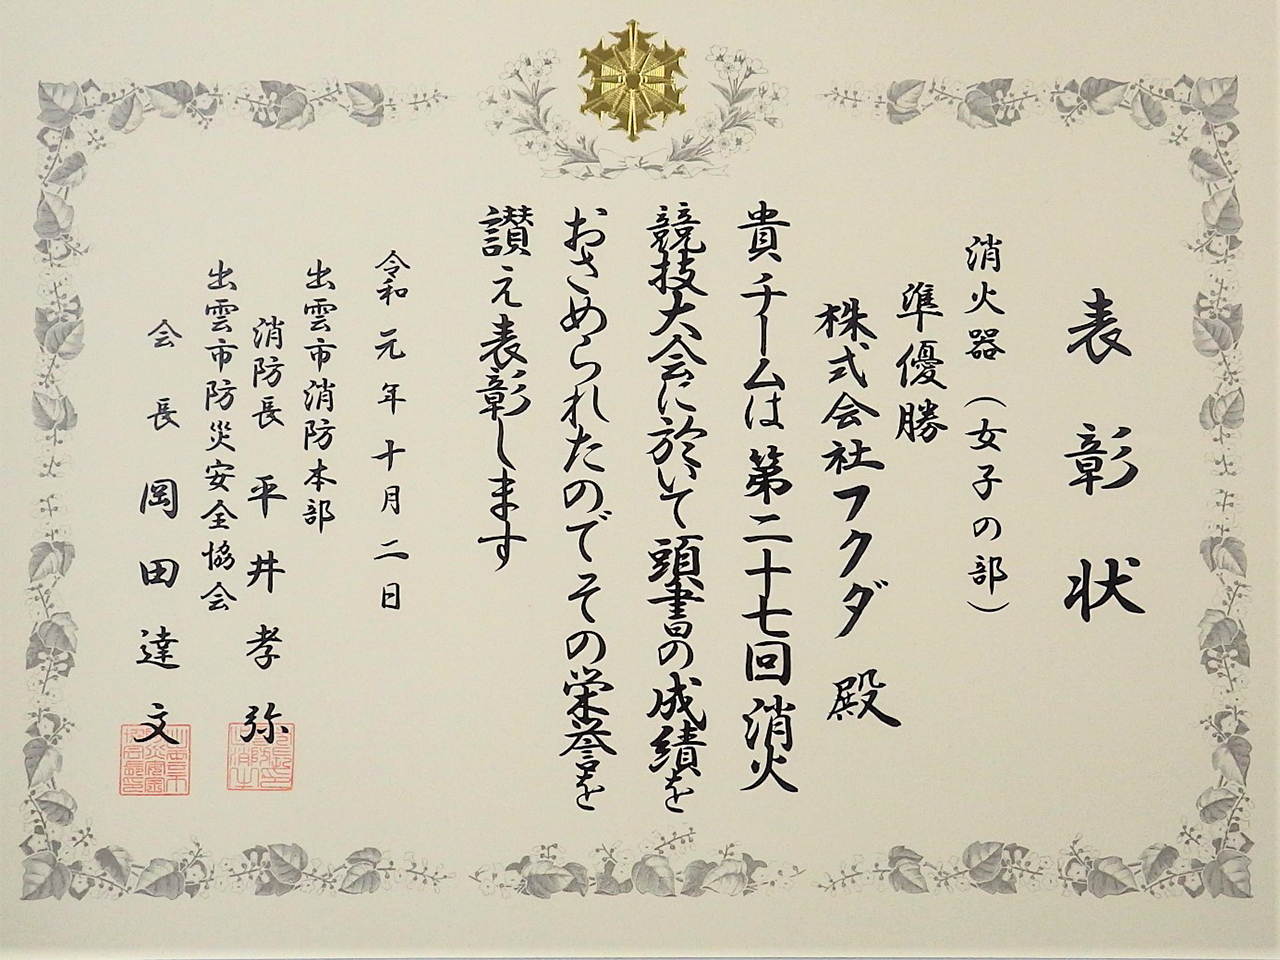 表彰状
消火器（女子の部）
準優勝
株式会社フクダ 殿
貴チームは第二十七回消火
競技大会に於いて頭書の成績を
おさめられたのでその栄誉を
讃え表彰します
令和元年十月二日
出雲市消防本部
消防長 平井孝弥
出雲市防災安全協会
会長 岡田達文